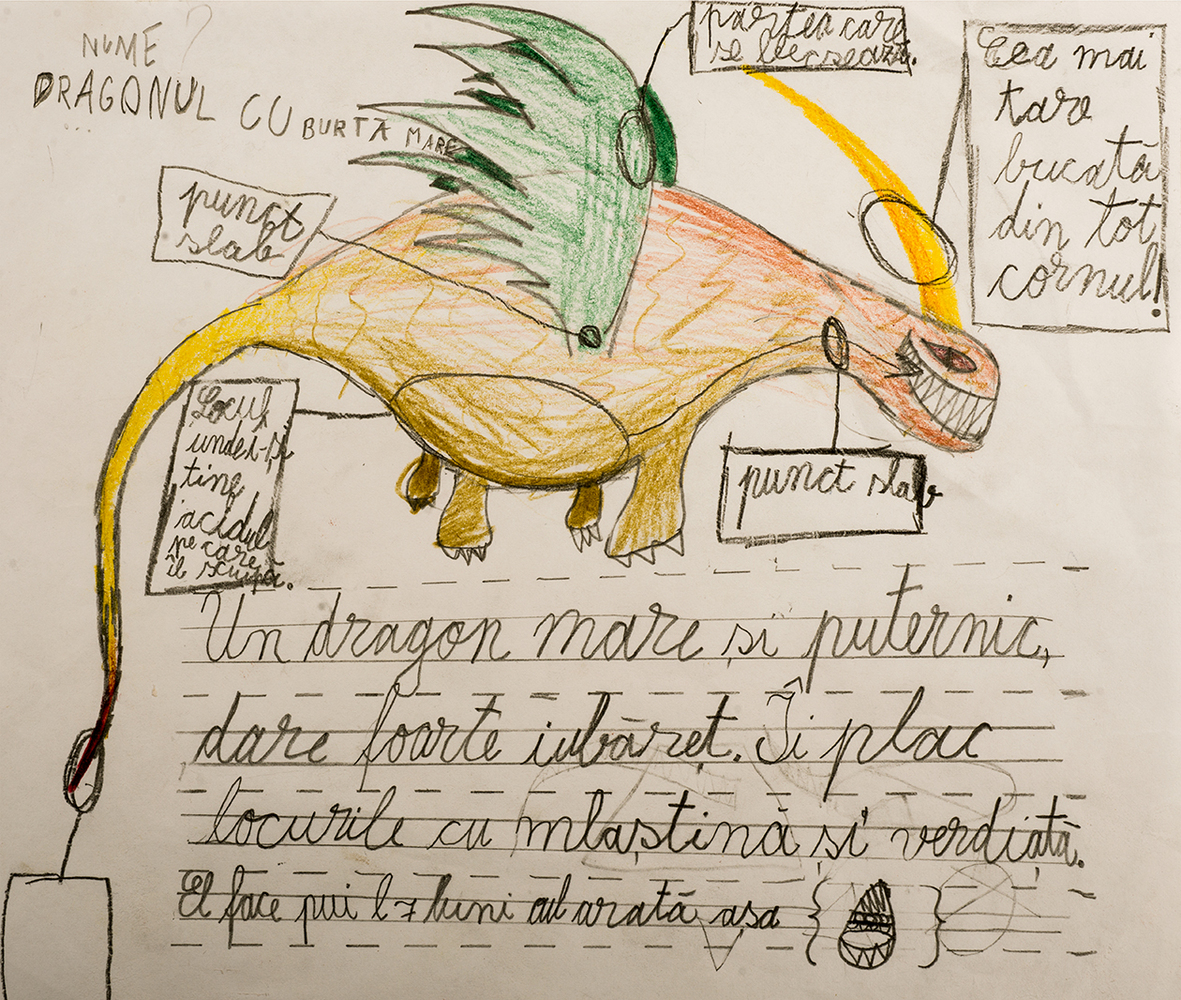 NUME ?
DRAGONUL CU BURTĂ MARE
partea care
se
Cea mai
tare
bucată
din tot
cornul!
punct
slab
Locul
unde-și
ține
acidul
pe care
îl scuipă.
punct slab
Un dragon mare și puternic,
dare foarte iubăreț. Îi plac
locurile cu mlaștină și verdiață.
El face pui l 7 luni arată așa